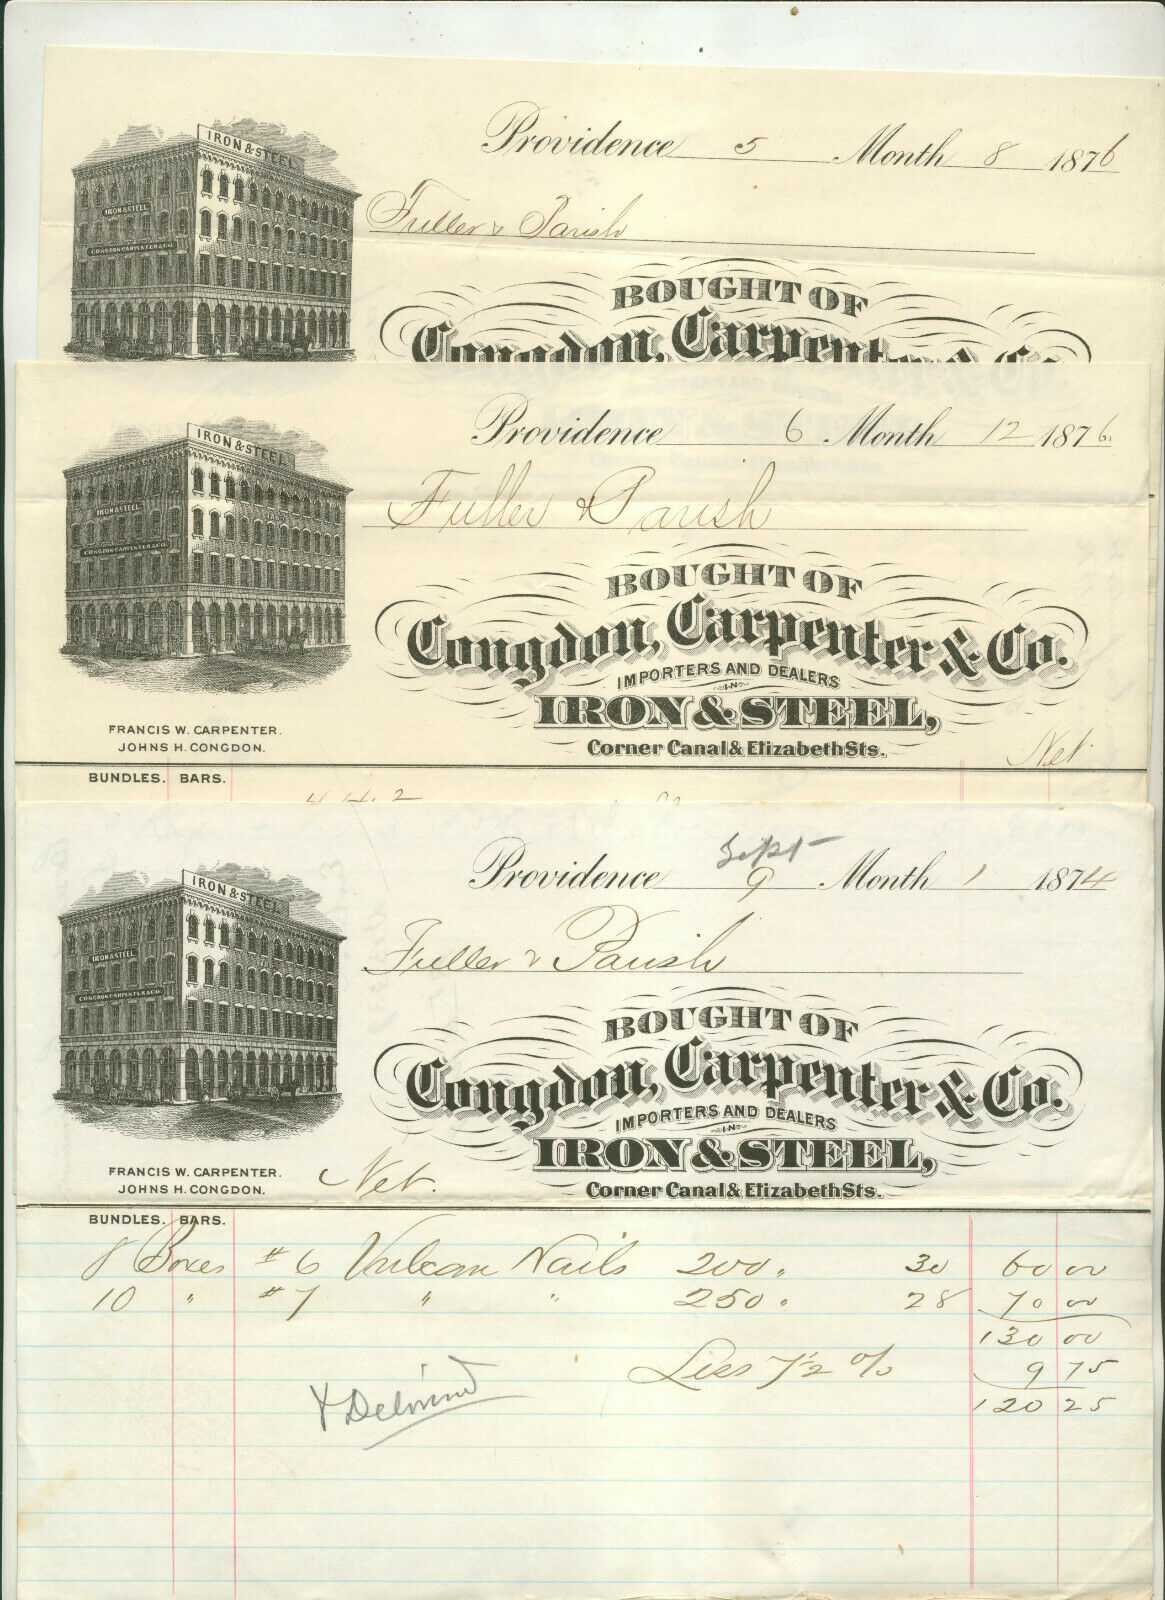 IRON & STEEL
IRON & STEEL
CONGDON CARPENTER & CO.
Providence 5 Month 8 1876
Fuller & Parish
BOUGHT OF
Congdon, Carpenter & Co.
IRON & STEEL
IRON & STEEL
CONGDON CARPENTER & CO.
Providence 6 Month 12 1876.
Fuller & Parish
BOUGHT OF
Congdon, Carpenter & Co.
IMPORTERS AND DEALERS
IN
IRON & STEEL,
Corner Canal & Elizabeth Sts.
FRANCIS W. CARPENTER.
JOHNS H. CONGDON.
Net
BUNDLES. BARS.
4 4. 2
IRON & STEEL
IRON & STEEL
CONGDON CARPENTER & CO.
Sept
Providence 9 Month 1 1874
Fuller & Parish
BOUGHT OF
Congdon, Carpenter & Co.
IMPORTERS AND DEALERS
IN
IRON & STEEL,
Corner Canal & Elizabeth Sts.
FRANCIS W. CARPENTER.
JOHNS H. CONGDON.
Net.
BUNDLES. BARS.
8 Boxes #6 Vulcan Nails 200 " 30 60 00
10 " #7 " " 250 " 28 70 00
130 00
Less 7 1/2 % 9 75
120 25